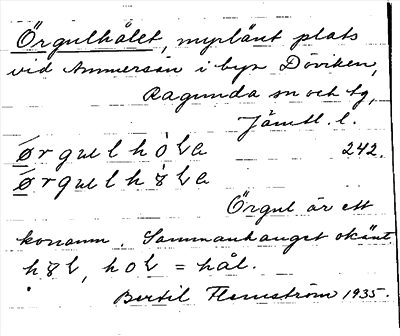 Örgulhålet, myrlänt plats
vid Ammerån i byn Döviken,
Ragunda sn och tg,
Jämtl. l.
Ørgulhòla 242.
Ørgulh8la
Örgul är ett
konamn. Sammanhanget okänt.
h8l, hol = hål.
Bertil Flemström 1935.